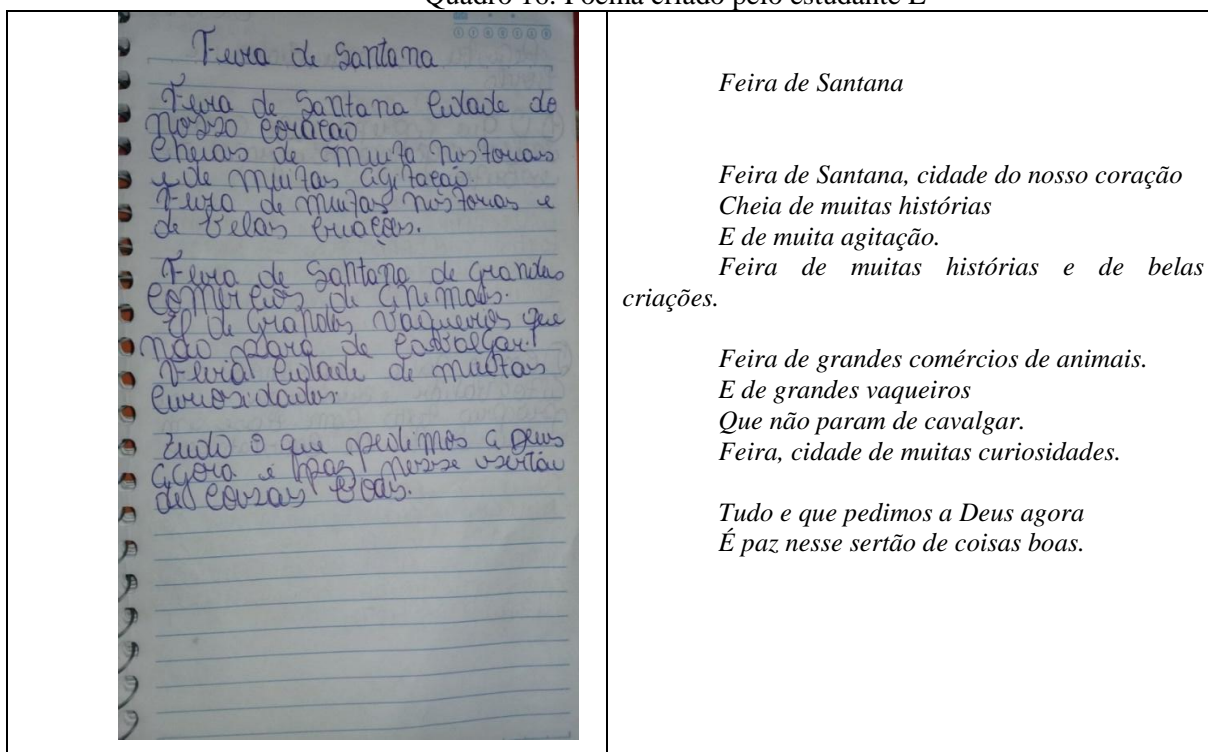 Quadro 18: Poema criado pelo estudante E
Feira de Santana
Feira de Santana Cidade do
nosso coração
Cheias de muita historias
e de muitas agitação.
Feira de muitas historias e
de belas criações.
Feira de Santana de grandes
comercios de animais.
E de grandes vaqueiros que
não para de cavalgar.
Feira cidade de muitas
curiosidades.
Tudo o que pedimos a Deus
agora é paz nesse sertão
de coisas boas.
Feira de Santana
Feira de Santana, cidade do nosso coração
Cheia de muitas histórias
E de muita agitação.
Feira de muitas histórias e de belas
criações.
Feira de grandes comércios de animais.
E de grandes vaqueiros
Que não param de cavalgar.
Feira, cidade de muitas curiosidades.
Tudo e que pedimos a Deus agora
É paz nesse sertão de coisas boas.